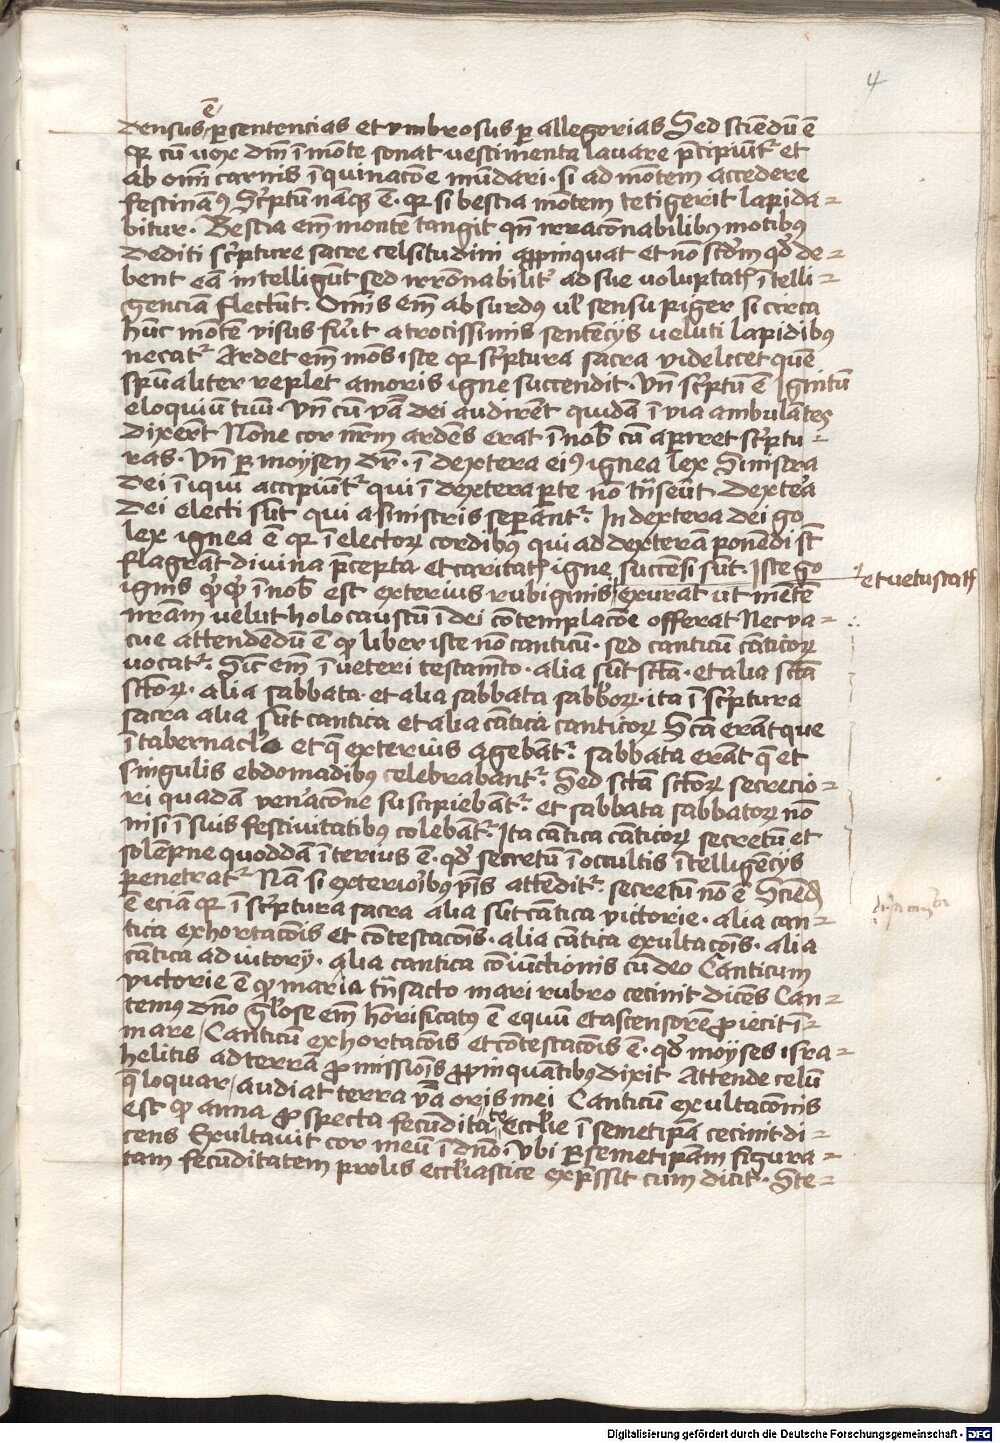 4
densus ē p sentencias et vmbrosus p allegorias Sed sciēdū ē
qr cū uox dnī ī mōte sonat vestimenta lauare p̄cipiūt᷑ et
ab omī carnis īquinacōe mūdari · si ad mōtem accedere
festinamꝰ Sc̓ptū nāqꝫ ē · qr si bestia mōtem tetigerit lapida=
bitur · Bestia em̄ monte tangit qn̄ irracōnabilibꝰ motibꝰ
dediti sc̓pture sacre celsitudini apꝓpinquat et nō scdm̄ qd̓ de=
bent eā intelligūt sed irrōnabilit̓ ad sue voluptatꝭ ītelli=
genciā flectūt · Omīs em̄ absurdꝰ ul̓ sensu piger si circa
hūc mōtē visus fu̓it atrocissimis sentēcijs veluti lapidibꝰ
necat᷑ Ardet em̄ mōs iste qr sc̓ptura sacra videlicet quē
sp̄ualiter replet amoris igne succendit · Vn̄ sc̓ptū ē Ignitū
eloquiū tuū · Vn̄ cū v̄ba dei audirēt quidā ī via ambulātes
dixer̄t Nōne cor nr̄m ardēs erat ī nob̓ cū apiret sc̓ptu=
ras · Vn̄ p moysen dr̄ · ī dextera eiꝰ ignea lex Sinistra
dei īiqui accipiūt᷑ qui ī dextera pte nō tn̄seūt dexte̓a
dei electi sūt qui a sinistris sepant᷑ · In dextera dei go
lex ignea ē qr ī electoꝝ cordibꝰ qui ad dexterā ponēdi st̄
flagrāt divina p̄cepta et caritatꝭ igne succensi sūt · Iste go
ignis qͥcqͥd ī nob̓ est exterius rubiginis exurat ut mētē
et vetustatꝭ
nr̄am velut holocaustū ī dei cōtemplacōe offerat Nec va=
cue attendedū ē qr liber iste nō canticū · sed canticū cāticoꝝ
vocat᷑ · Sic em̄ ī veteri testamēto · alia sūt sctā · et alia sctā
sctōꝝ · alia sabbata · et alia sabbata sabb̓oꝝ · ita ī sc̓ptura
sacra alia sūt cantica et alia cātica canticoꝝ Sctā erāt que
ī tabernacl̓o et q̄ exterius agebāt᷑ · sabbata erāt q̄ et
singulis ebdomadibꝰ celebrabant᷑ · Sed sctā sctōꝝ secrecio=
ri quadā ven̓acōne suscipiebāt᷑ · et sabbata sabbatoꝝ nō
nisi ī suis festivitatibꝰ colebāt᷑ Ita cātica cāticoꝝ secretū et
solēpne quoddā īterius ē · qd̓ secretū ī occultis ītelligēcijs
penetrat᷑ Nā si exterio̓ibꝰ v̓bis attēdit᷑ · secretū nō ē Sciend̄
ē eciā qr ī sc̓ptura sacra alia sūt cātica victorie · alia can=
tica exhortacōis et cōtestacōis · alia cātica exultacōis · alia
cātica adiutorij · alia cantica cōiūctionis cū deo Canticum
victorie ē qr maria tn̄sacto mari rubro cecinit dicēs Can=
temꝰ dn̄o gl̓ose em̄ honorificatꝰ ē equū et ascensorē ꝓiecit ī
mare / Canticū exhortacōis et cōtestacōis ē · qd̓ moyses isra=
helitis ad terrā ꝓmissiōis ꝓpīnquātibꝰ dixit Attende celū
q̄ loquar / audiat terra v̄ba oris mei Canticū exultacōnis
est qr anna ꝓspecta fecūditate eccl̓ie ī semetip̄a cecinit di=
cens Exultavit cor meū ī dn̄o · Vbi p semetip̄am figura=
tam fecūditatem prolis eccl̓iastice exp̄ssit cum dicit · Ste=
Digitalisierung gefördert durch die Deutsche Forschungsgemeinschaft · DFG